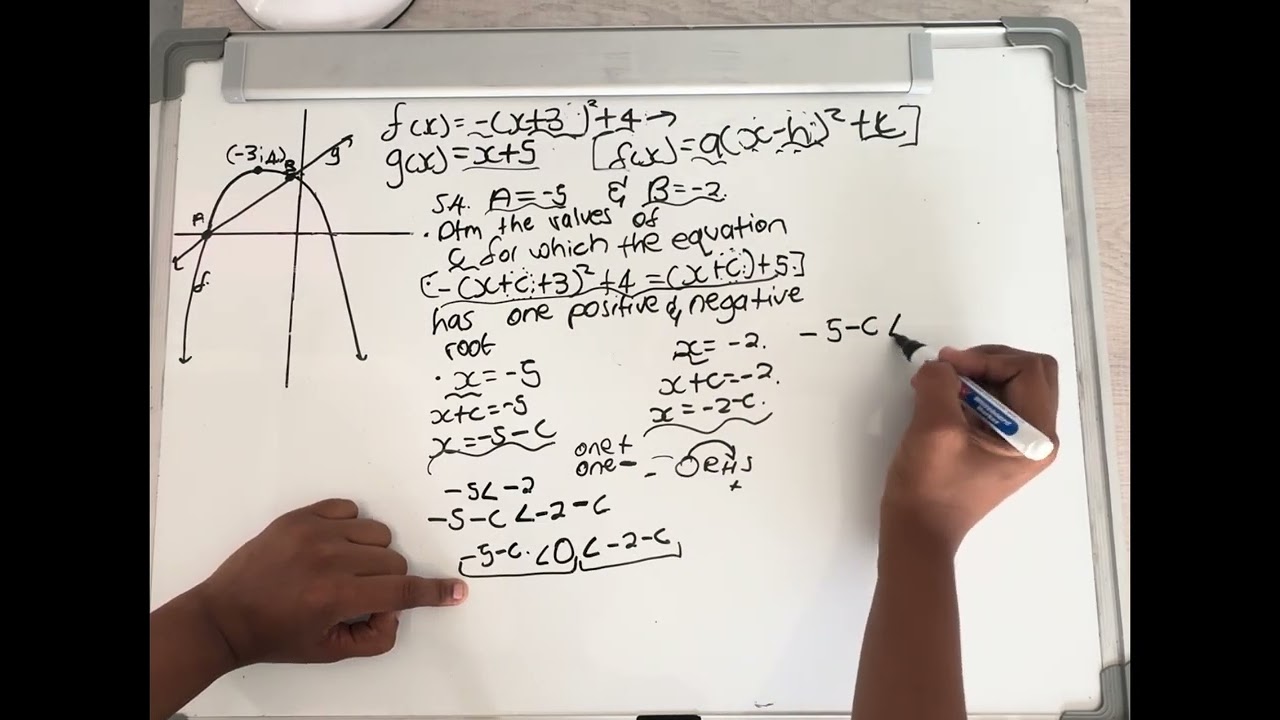 f(x) = -(x+3)² + 4 →
g(x) = x+5 [f(x) = a(x-h)² + k]
(-3;4)
B
g
A
f
5.4. A = -5 & B = -2.
• Dtm the values of
c for which the equation
[-(x+c+3)² + 4 = (x+c) + 5]
has one positive & negative
root
• x = -5
x+c = -5
x = -5-c
x = -2.
x+c = -2.
x = -2-c.
one +
one -
- O RHS
+
-5 < -2
-5-c < -2-c
-5-c < 0 < -2-c
-5-c <